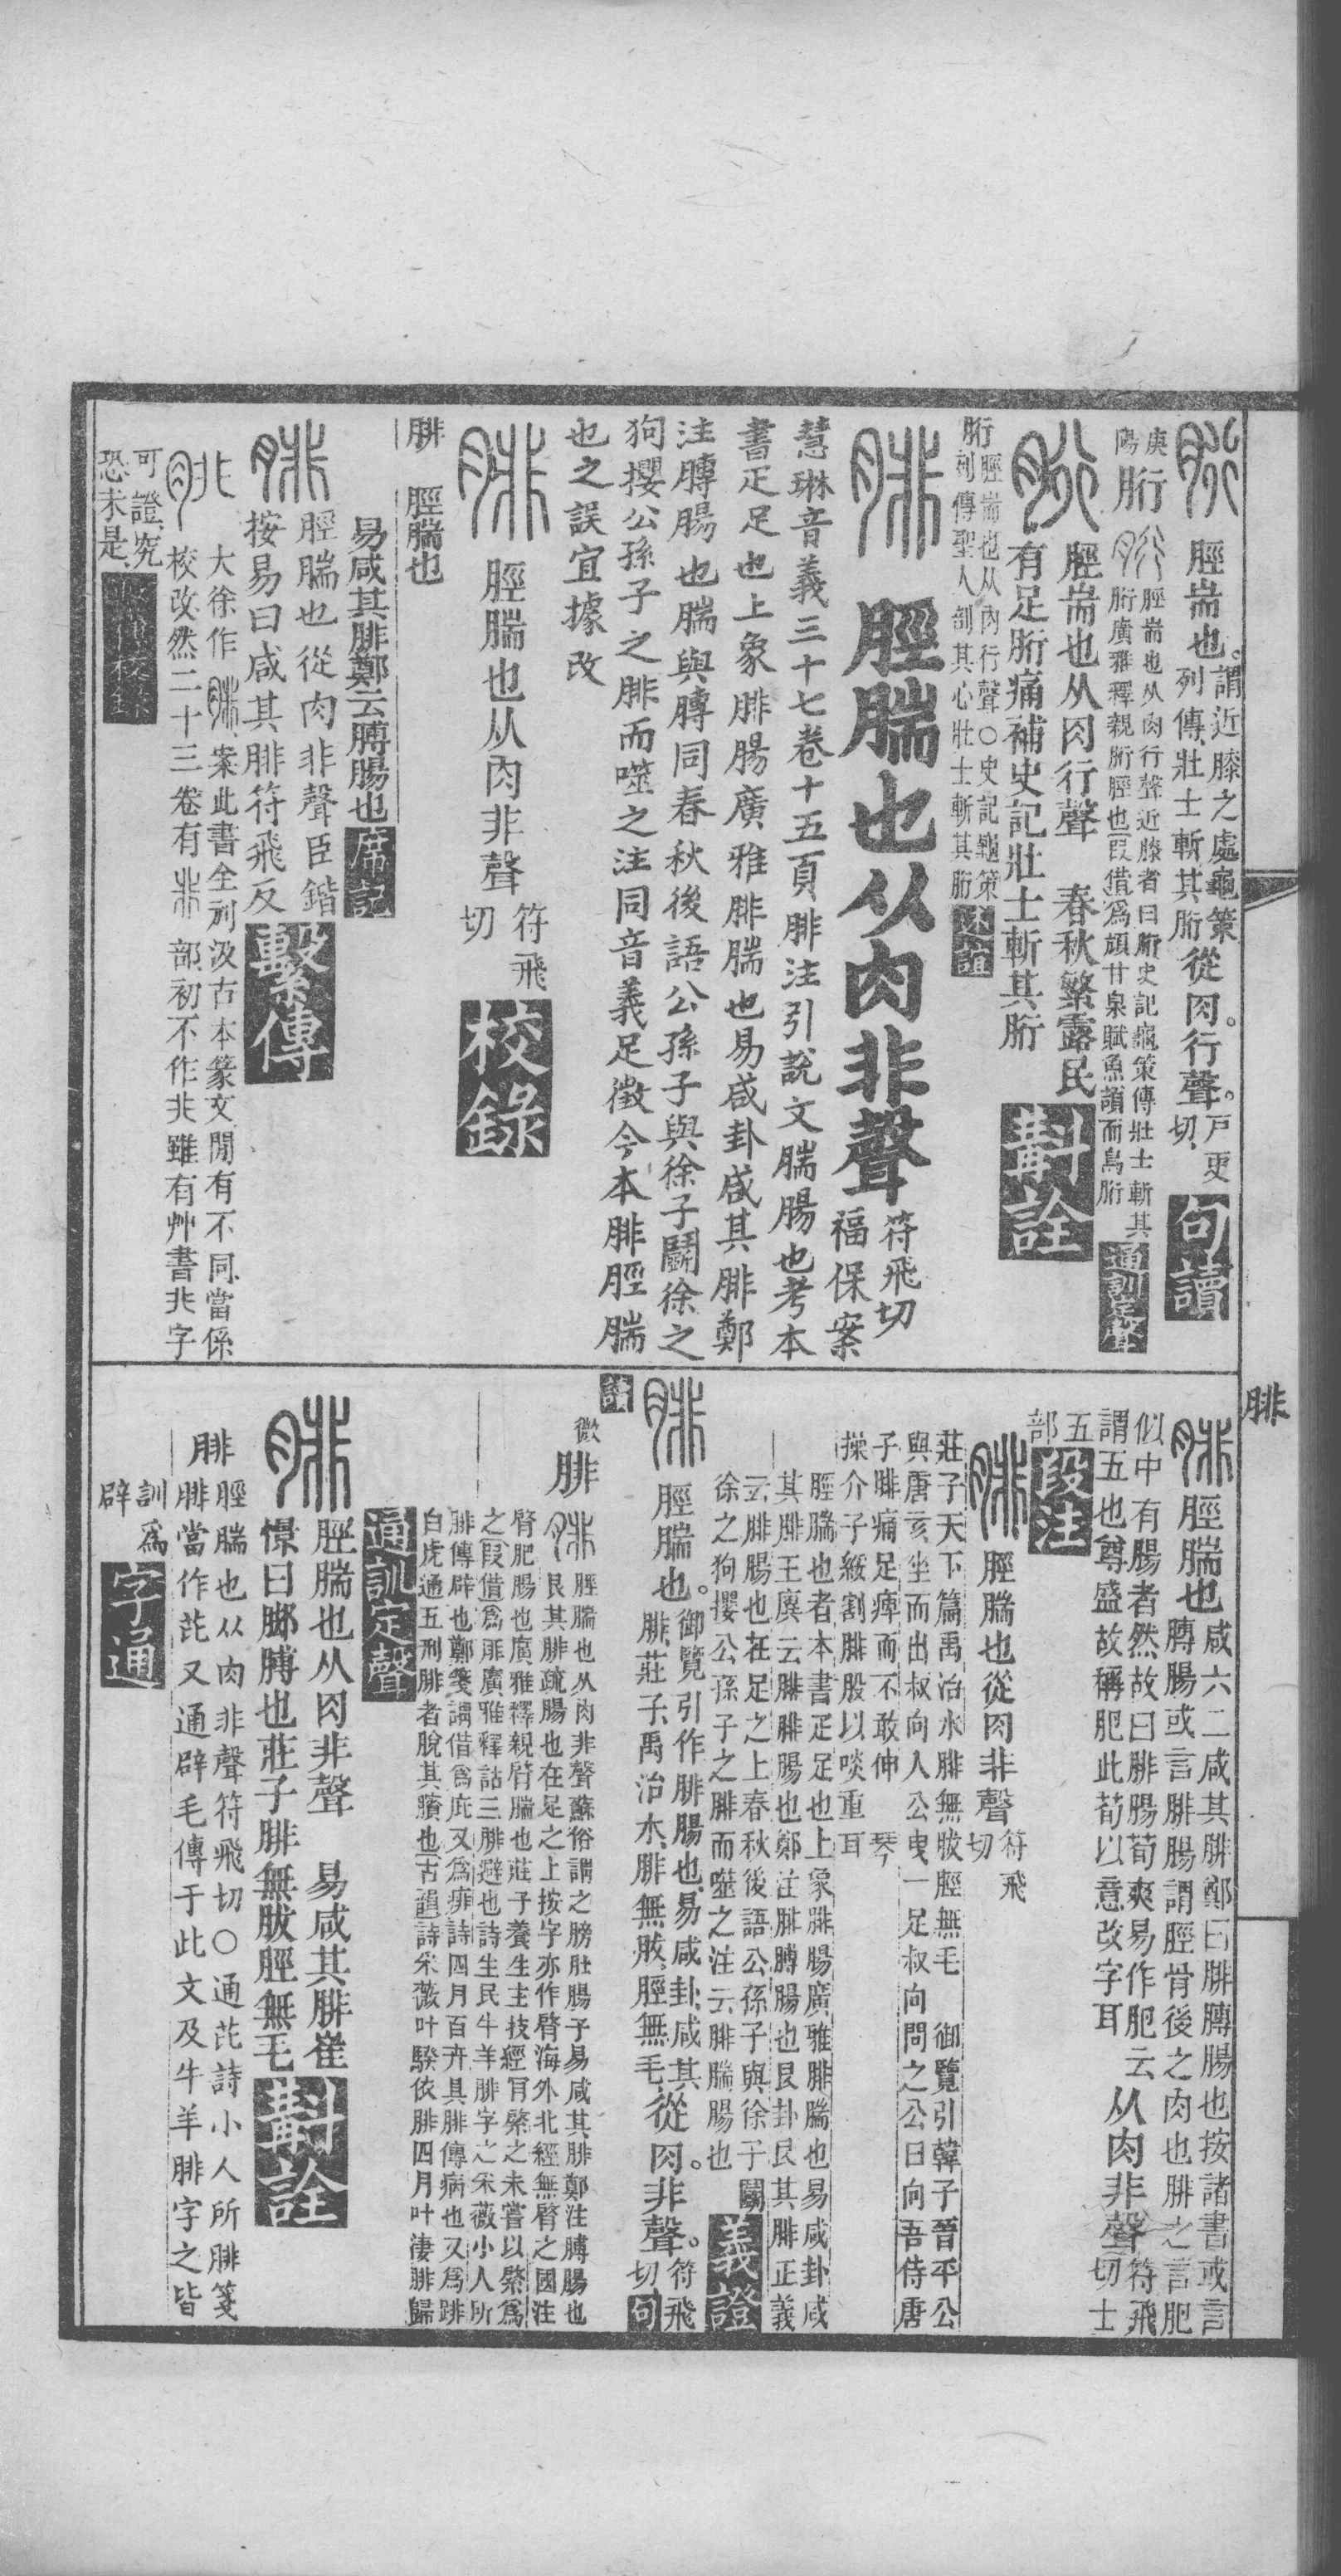 脛耑也。謂近膝之處龜策
列傳壯士斬其胻從肉。行聲。戶更
切、句讀
庚
陽
胻 脛耑也从肉行聲近膝者曰胻史記龜策傳壯士斬其
胻廣雅釋親胻脛也叚借爲頏甘泉賦魚頡而鳥胻 通訓定聲
脛耑也从肉行聲 春秋繁露民
有足胻痛補史記壯士斬其胻 斠詮
胻 脛耑也从肉行聲○史記龜策
列傳聖人剖其心壯士斬其胻
脛腨也从肉非聲 符飛切
福保案
慧琳音義三十七卷十五頁腓注引說文腨腸也考本
書疋足也上象腓腸廣雅腓腨也易咸卦咸其腓鄭
注膞腸也腨與膞同春秋後語公孫子與徐子鬬徐之
狗攫公孫子之腓而噬之注同音義足徵今本腓脛腨
也之誤宜據改
脛腨也从肉非聲 符飛
切 校錄
腓 脛腨也
易咸其腓鄭云膞腸也 席記
脛腨也從肉非聲臣鍇
按易曰咸其腓符飛反 繫傳
大徐作腓案此書全刋汲古本篆文閒有不同當係
校改然二十三卷有 部初不作 雖有艸書 字
可證究
恐未是、
腓
脛腨也咸六二咸其腓鄭曰腓膞腸也按諸書或言
膞腸或言腓腸謂脛骨後之肉也腓之言肥
似中有腸者然故曰腓腸荀爽易作肥云从肉非聲符飛
謂五也尊盛故稱肥此荀以意改字耳 切士
五
部 段注
脛腨也從肉非聲 符飛
切
莊子天下篇禹治水腓無胈脛無毛 御覽引韓子晉平公
與唐亥坐而出叔向入公曳一足叔向問之公曰向吾侍唐
子腓痛足痺而不敢伸 琴
操介子綏割腓股以啖重耳
脛腨也者本書疋足也上象腓腸廣雅腓腨也易咸卦咸
其腓王廙云腓腓腸也鄭注腓膞腸也艮卦艮其腓正義
云腓腸也在足之上春秋後語公孫子與徐子鬬
徐之狗攫公孫子之腓而噬之注云腓腨腸也 義證
脛腨也。御覽引作腓腸也、易咸卦、咸其
腓、莊子、禹治水、腓無胈、脛無毛、從肉。非聲。符飛
切 句
讀
微
腓 脛腨也从肉非聲蘇俗謂之膀肚腸子易咸其腓鄭注膞腸也
艮其腓疏腸也在足之上按字亦作䏿海外北經無䏿之國注
䏿肥腸也廣雅釋親䏿腨也莊子養生主技經肎綮之未嘗以綮爲
之叚借爲厞廣雅釋詁三腓避也詩生民牛羊腓字之采薇小人所
腓傳辟也鄭箋謂借爲庇又爲痱詩四月百卉具腓傳病也又爲跸
白虎通五刑腓者脫其臏也古韻詩采薇叶騤依腓四月叶淒腓歸
通訓定聲
脛腨也从肉非聲 易咸其腓崔
憬曰腳膞也莊子腓無胈脛無毛 斠詮
腓 脛腨也从肉非聲符飛切○通芘詩小人所腓箋
腓當作芘又通辟毛傳于此文及牛羊腓字之皆
訓爲
辟 字通